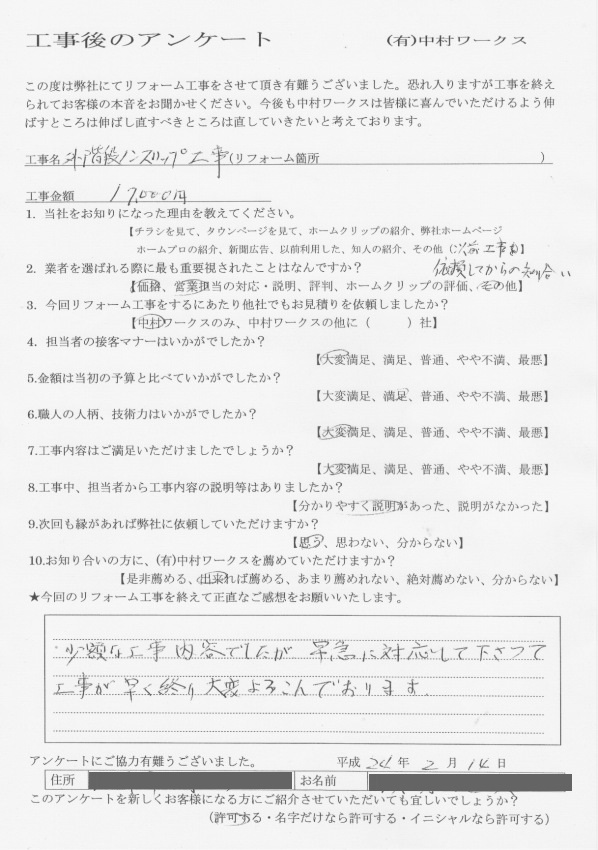 工事後のアンケート (有)中村ワークス
この度は弊社にてリフォーム工事をさせて頂き有難うございました。恐れ入りますが工事を終え
られてお客様の本音をお聞かせください。今後も中村ワークスは皆様に喜んでいただけるよう伸
ばすところは伸ばし直すべきところは直していきたいと考えております。
工事名 外階段ノンスリップ工事(リフォーム箇所 )
工事金額 17,000円
1. 当社をお知りになった理由を教えてください。
【チラシを見て、タウンページを見て、ホームクリップの紹介、弊社ホームページ
ホームプロの紹介、新聞広告、以前利用した、知人の紹介、その他（以前工事を
依頼してからの知り合い
2. 業者を選ばれる際に最も重要視されたことはなんですか？
【価格、営業担当の対応・説明、評判、ホームクリップの評価、その他】
3. 今回リフォーム工事をするにあたり他社でもお見積りを依頼しましたか？
【中村ワークスのみ、中村ワークスの他に（ ）社】
4. 担当者の接客マナーはいかがでしたか？
【大変満足、満足、普通、やや不満、最悪】
5.金額は当初の予算と比べていかがでしたか？
【大変満足、満足、普通、やや不満、最悪】
6.職人の人柄、技術力はいかがでしたか？
【大変満足、満足、普通、やや不満、最悪】
7.工事内容はご満足いただけましたでしょうか？
【大変満足、満足、普通、やや不満、最悪】
8.工事中、担当者から工事内容の説明等はありましたか？
【分かりやすく説明があった、説明がなかった】
9.次回も縁があれば弊社に依頼していただけますか？
【思う、思わない、分からない】
10.お知り合いの方に、(有)中村ワークスを薦めていただけますか？
【是非薦める、出来れば薦める、あまり薦めれない、絶対薦めない、分からない】
★今回のリフォーム工事を終えて正直なご感想をお願いいたします。
・少額な工事内容でしたが 早急に対応して下さって
工事が早く終り大変よろこんでおります．
アンケートにご協力有難うございました。 平成 24 年 2 月 14 日
住所 お名前
このアンケートを新しくお客様になる方にご紹介させていただいても宜しいでしょうか？
(許可する・名字だけなら許可する・イニシャルなら許可する)